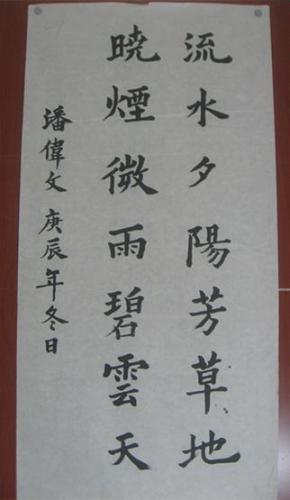 流水夕陽芳草地
曉煙微雨碧雲天
潘偉文 庚辰年冬日